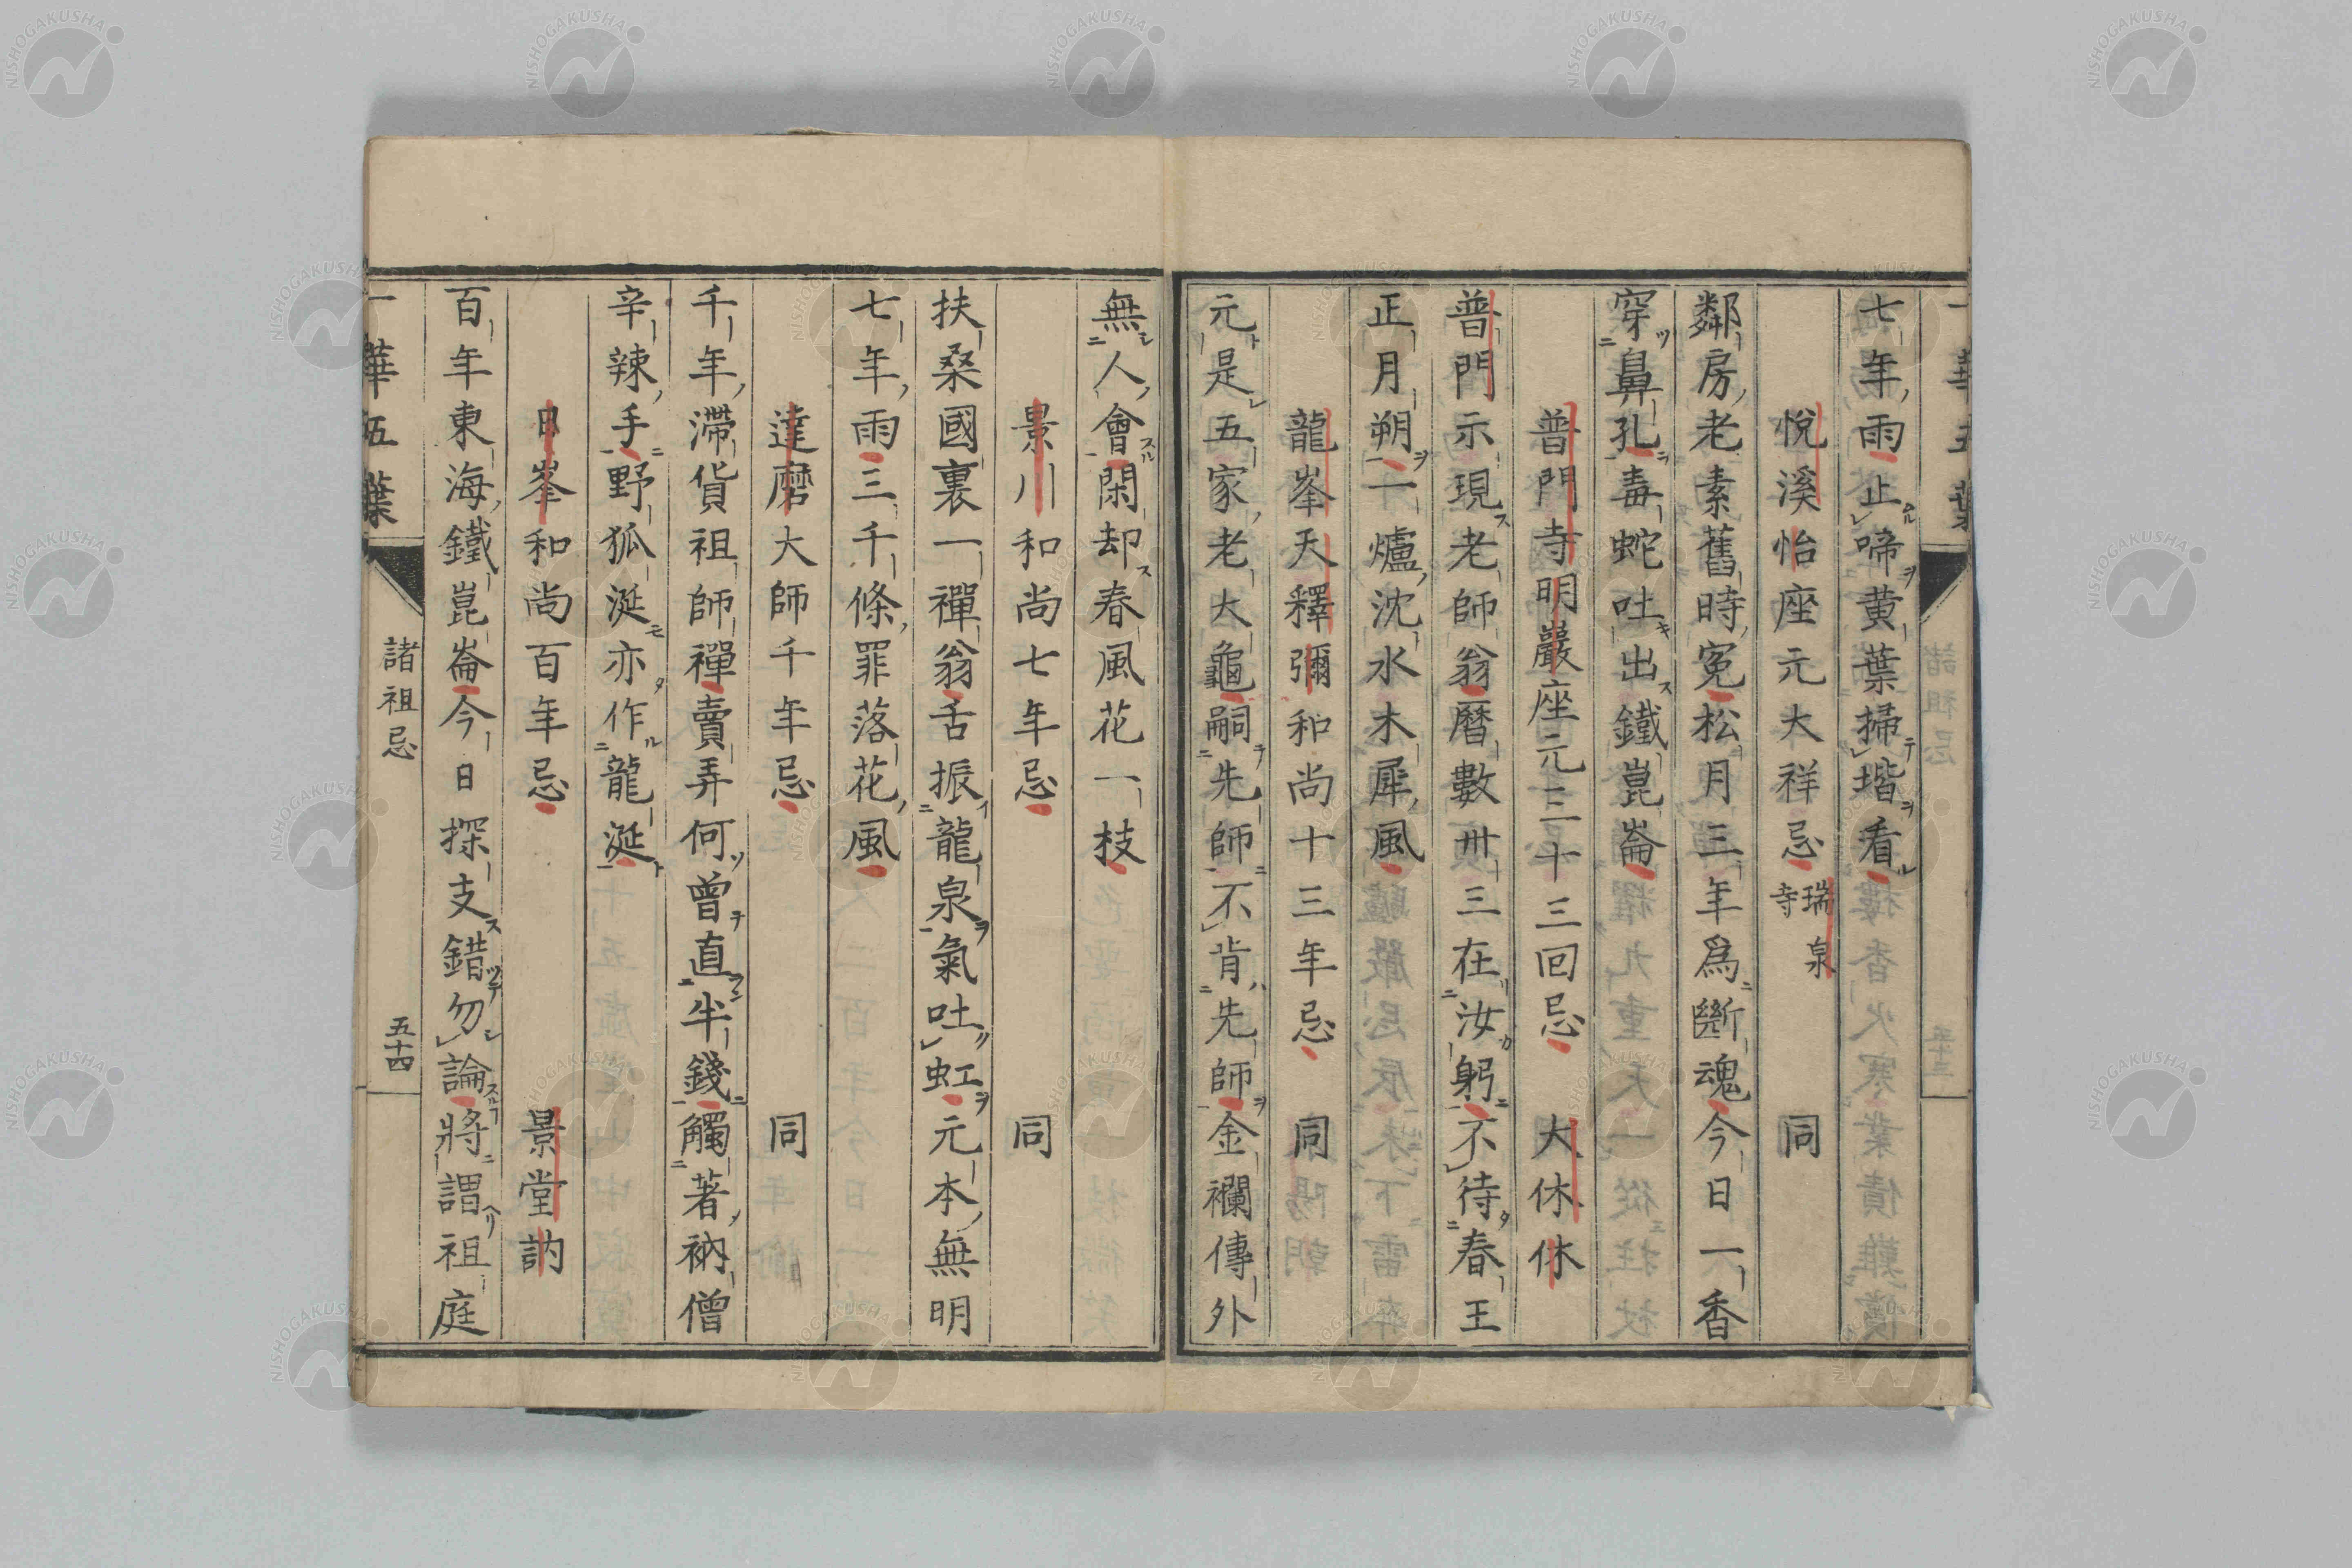 七年雨止啼黄葉掃堦看
悅溪怡座元大祥忌 瑞泉寺 同
鄰房老素舊時寃松月三年爲斷魂今日一香
穿鼻孔毒蛇吐出鐵崑崙
普門寺明巖座元三十三回忌 大休休
普門示現老師翁曆數卅三在汝躬不待春王
正月朔一爐沈水木犀風
龍峯天釋彌和尚十三年忌 同
元是五家老大龜嗣先師不肯先師金襴傳外
無人會閑却春風花一枝
景川和尚七年忌 同
扶桑國裏一禪翁舌振龍泉氣吐虹元本無明
七年雨三千條罪落花風
達磨大師千年忌 同
千年滯貨祖師禪賣弄何曾直半錢觸著衲僧
辛辣手野狐涎亦作龍涎
日峯和尚百年忌 景堂訥
百年東海鐵崑崙今日探支錯勿論將謂祖庭
一華五葉 諸祖忌 五十四